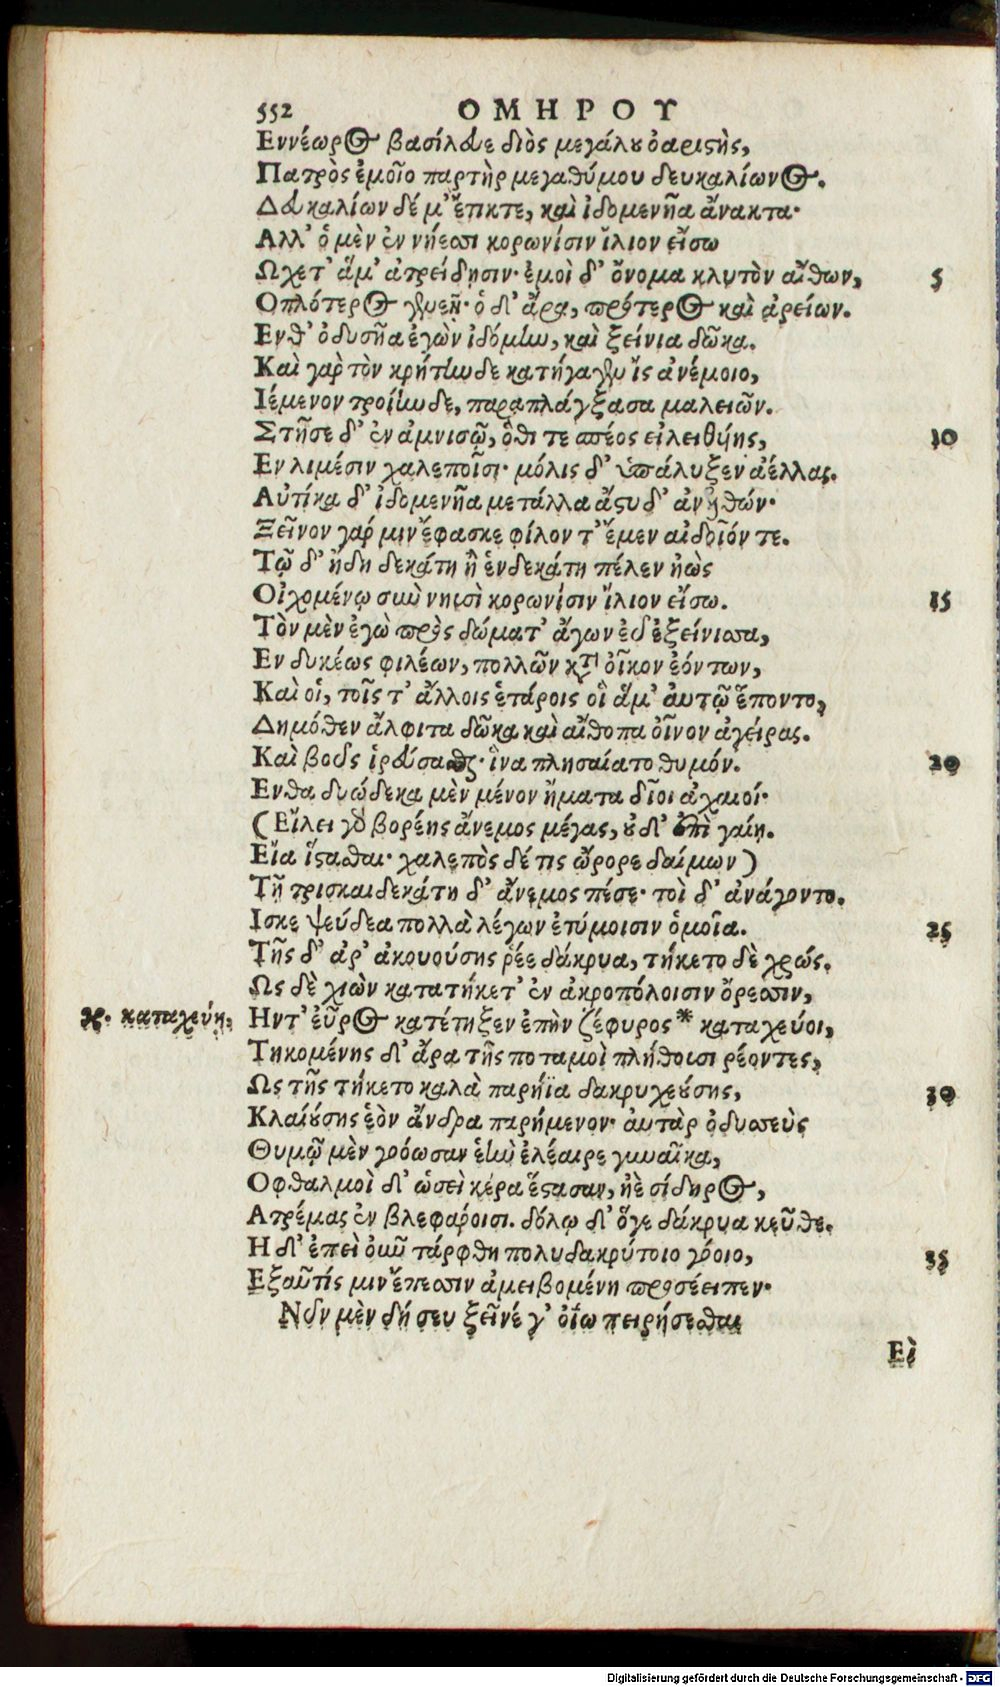 552 ΟΜΗΡΟΥ
Εννέωρος βασίλευε διὸς μεγάλου ὀαριστὴς,
Πατρὸς ἐμοῖο πατὴρ μεγαθύμου δευκαλίωνος.
Δευκαλίων δέ μ' ἔτικτε, καὶ ἰδομενῆα ἄνακτα·
Αλλ' ὁ μὲν ἐν νήεσσι κορωνίσιν ἴλιον εἴσω
Ωχετ' ἅμ' ἀτρείδησιν· ἐμοὶ δ' ὄνομα κλυτὸν αἴθων, 5
Οπλότερος γενεῇ· ὁ δ' ἄρα, πρότερος καὶ ἀρείων.
Ενθ' ὀδυσῆα ἐγὼν ἰδόμην, καὶ ξείνια δῶκα.
Καὶ γὰρ τὸν κρήτην δε κατήγαγεν ἲς ἀνέμοιο,
Ιέμενον τροίην δε, παραπλάγξασα μαλειῶν.
Στῆσε δ' ἐν ἀμνισῷ, ὅθι τε σπέος εἰλειθύης, 10
Εν λιμέσιν χαλεποῖσι· μόλις δ' ὑπάλυξεν ἀέλλας.
Αὐτίκα δ' ἰδομενῆα μετάλλα ἄστυ δ' ἀνελθών·
Ξεῖνον γάρ μιν ἔφασκε φίλον τ' ἔμεν αἰδοῖόν τε.
Τῷ δ' ἤδη δεκάτη ἢ ἑνδεκάτη πέλεν ἠὼς
Οἰχομένῳ σὺν νηυσὶ κορωνίσιν ἴλιον εἴσω. 15
Τὸν μὲν ἐγὼ πρὸς δώματ' ἄγων εὖ ἐξείνισσα,
Εν δυκέως φιλέων, πολλῶν κατὰ οἶκον ἐόντων,
Καὶ οἱ, τοῖς τ' ἄλλοις ἑτάροις οἳ ἅμ' αὐτῷ ἕποντο,
Δημόθεν ἄλφιτα δῶκα καὶ αἴθοπα οἶνον ἀγείρας.
Καὶ βοῦς ἱρεύσασθαι· ἵνα πλησαίατο θυμόν. 20
Ενθα δυώδεκα μὲν μένον ἤματα δῖοι ἀχαιοί·
(Εἴλει γὰρ βορέης ἄνεμος μέγας, οὐδ' ἐπὶ γαίῃ.
Εἴα ἵστασθαι· χαλεπὸς δέ τις ὤρορε δαίμων)
Τῇ τρισκαιδεκάτῃ δ' ἄνεμος πέσε· τοὶ δ' ἀνάγοντο.
Ισκε ψεύδεα πολλὰ λέγων ἐτύμοισιν ὁμοῖα. 25
Τῆς δ' ἀρ' ἀκουούσης ῥέε δάκρυα, τήκετο δὲ χρώς.
Ως δὲ χιὼν κατατήκετ' ἐν ἀκροπόλοισιν ὄρεσσιν,
γρ. καταχεύῃ, Ηντ' εὖρος κατέτηξεν ἐπὴν ζέφυρος * καταχεύοι,
Τηκομένης δ' ἄρα τῆς ποταμοὶ πλήθουσι ῥέοντες,
Ως τῆς τήκετο καλὰ παρήϊα δακρυχεούσης, 30
Κλαιούσης ἑὸν ἄνδρα παρήμενον· αὐτὰρ ὀδυσσεὺς
Θυμῷ μὲν γοόωσαν ἑὴν ἐλέαιρε γυναῖκα,
Οφθαλμοὶ δ' ὡσεὶ κέρα ἕστασαν, ἠὲ σίδηρος,
Ατρέμας ἐν βλεφάροισι. δόλῳ δ' ὅγε δάκρυα κεῦθε.
Η δ' ἐπεὶ οὖν τάρφθη πολυδακρύτοιο γόοιο, 35
Εξαῦτίς μιν ἔπεσσιν ἀμειβομένη προσέειπεν·
Νῦν μὲν δή σευ ξεῖνέ γ' ὀΐω πειρήσεσθαι
Εἰ
Digitalisierung gefördert durch die Deutsche Forschungsgemeinschaft - DFG